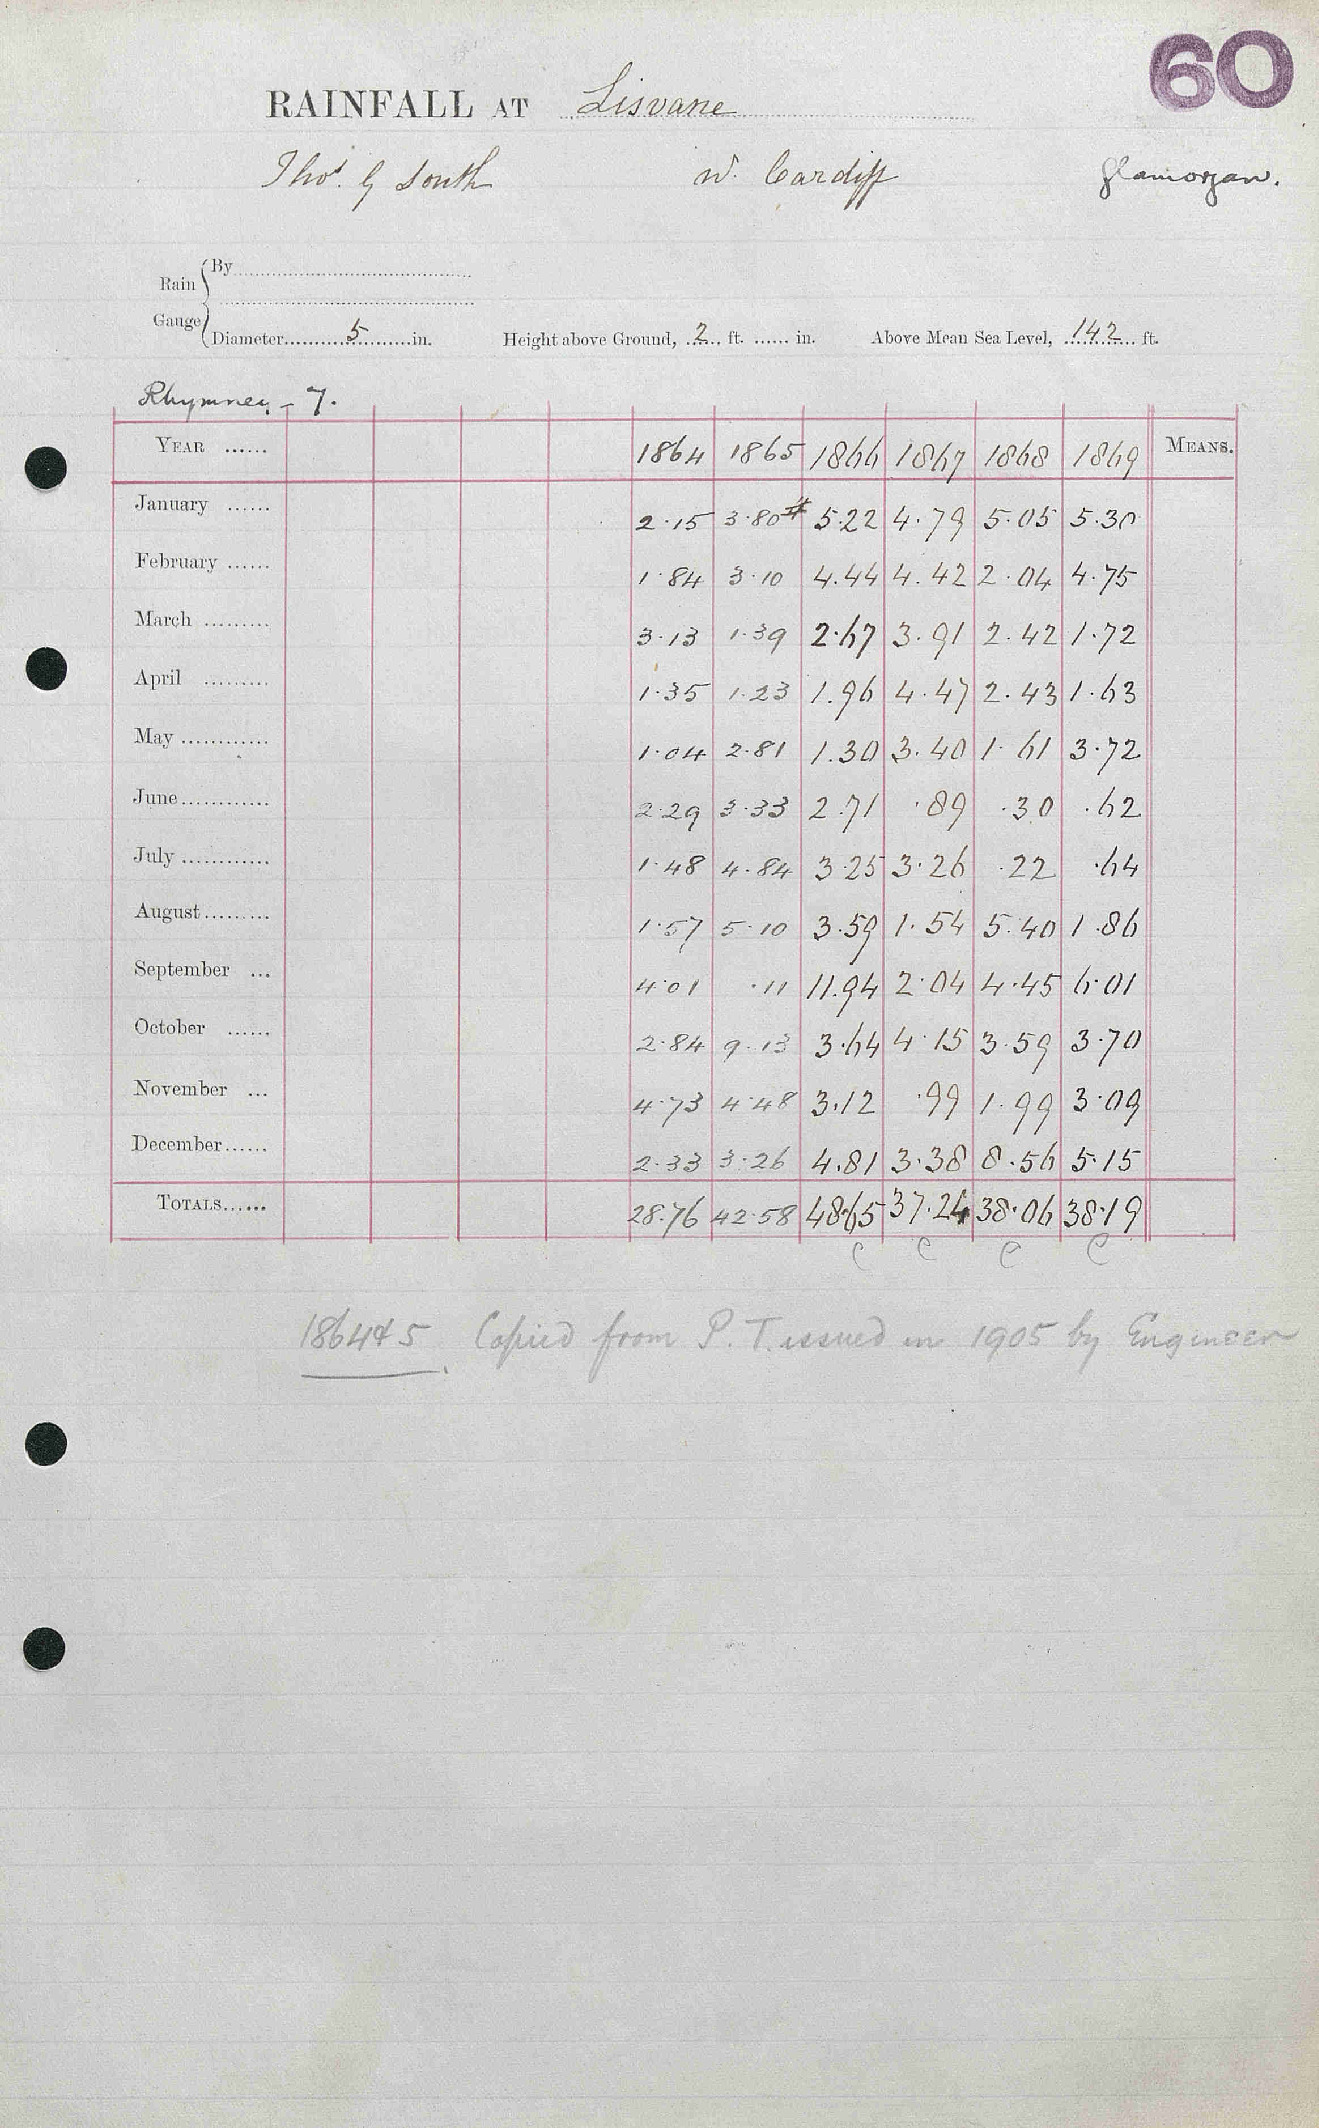 60
RAINFALL AT Lisvane
Thos. G South nr. Cardiff Glamorgan.
Rain Gauge { By
Diameter 5 in. Height above Ground, 2 ft. in. Above Mean Sea Level, 142 ft.
Rhymney - 7.
YEAR 1864 1865 1866 1867 1868 1869 MEANS.
January 2.15 3.80# 5.22 4.79 5.05 5.30
February 1.84 3.10 4.44 4.42 2.04 4.75
March 3.13 1.39 2.67 3.91 2.42 1.72
April 1.35 1.23 1.96 4.47 2.43 1.63
May 1.04 2.81 1.30 3.40 1.61 3.72
June 2.29 3.33 2.71 .89 .30 .62
July 1.48 4.84 3.25 3.26 .22 .64
August 1.57 5.10 3.59 1.54 5.40 1.86
September 4.01 .11 11.94 2.04 4.45 6.01
October 2.84 9.13 3.64 4.15 3.59 3.70
November 4.73 4.48 3.12 .99 1.99 3.09
December 2.33 3.26 4.81 3.38 8.56 5.15
TOTALS 28.76 42.58 48.65 37.24 38.06 38.19
C C C C
1864 & 5 Copied from P. T. issued in 1905 by Engineer